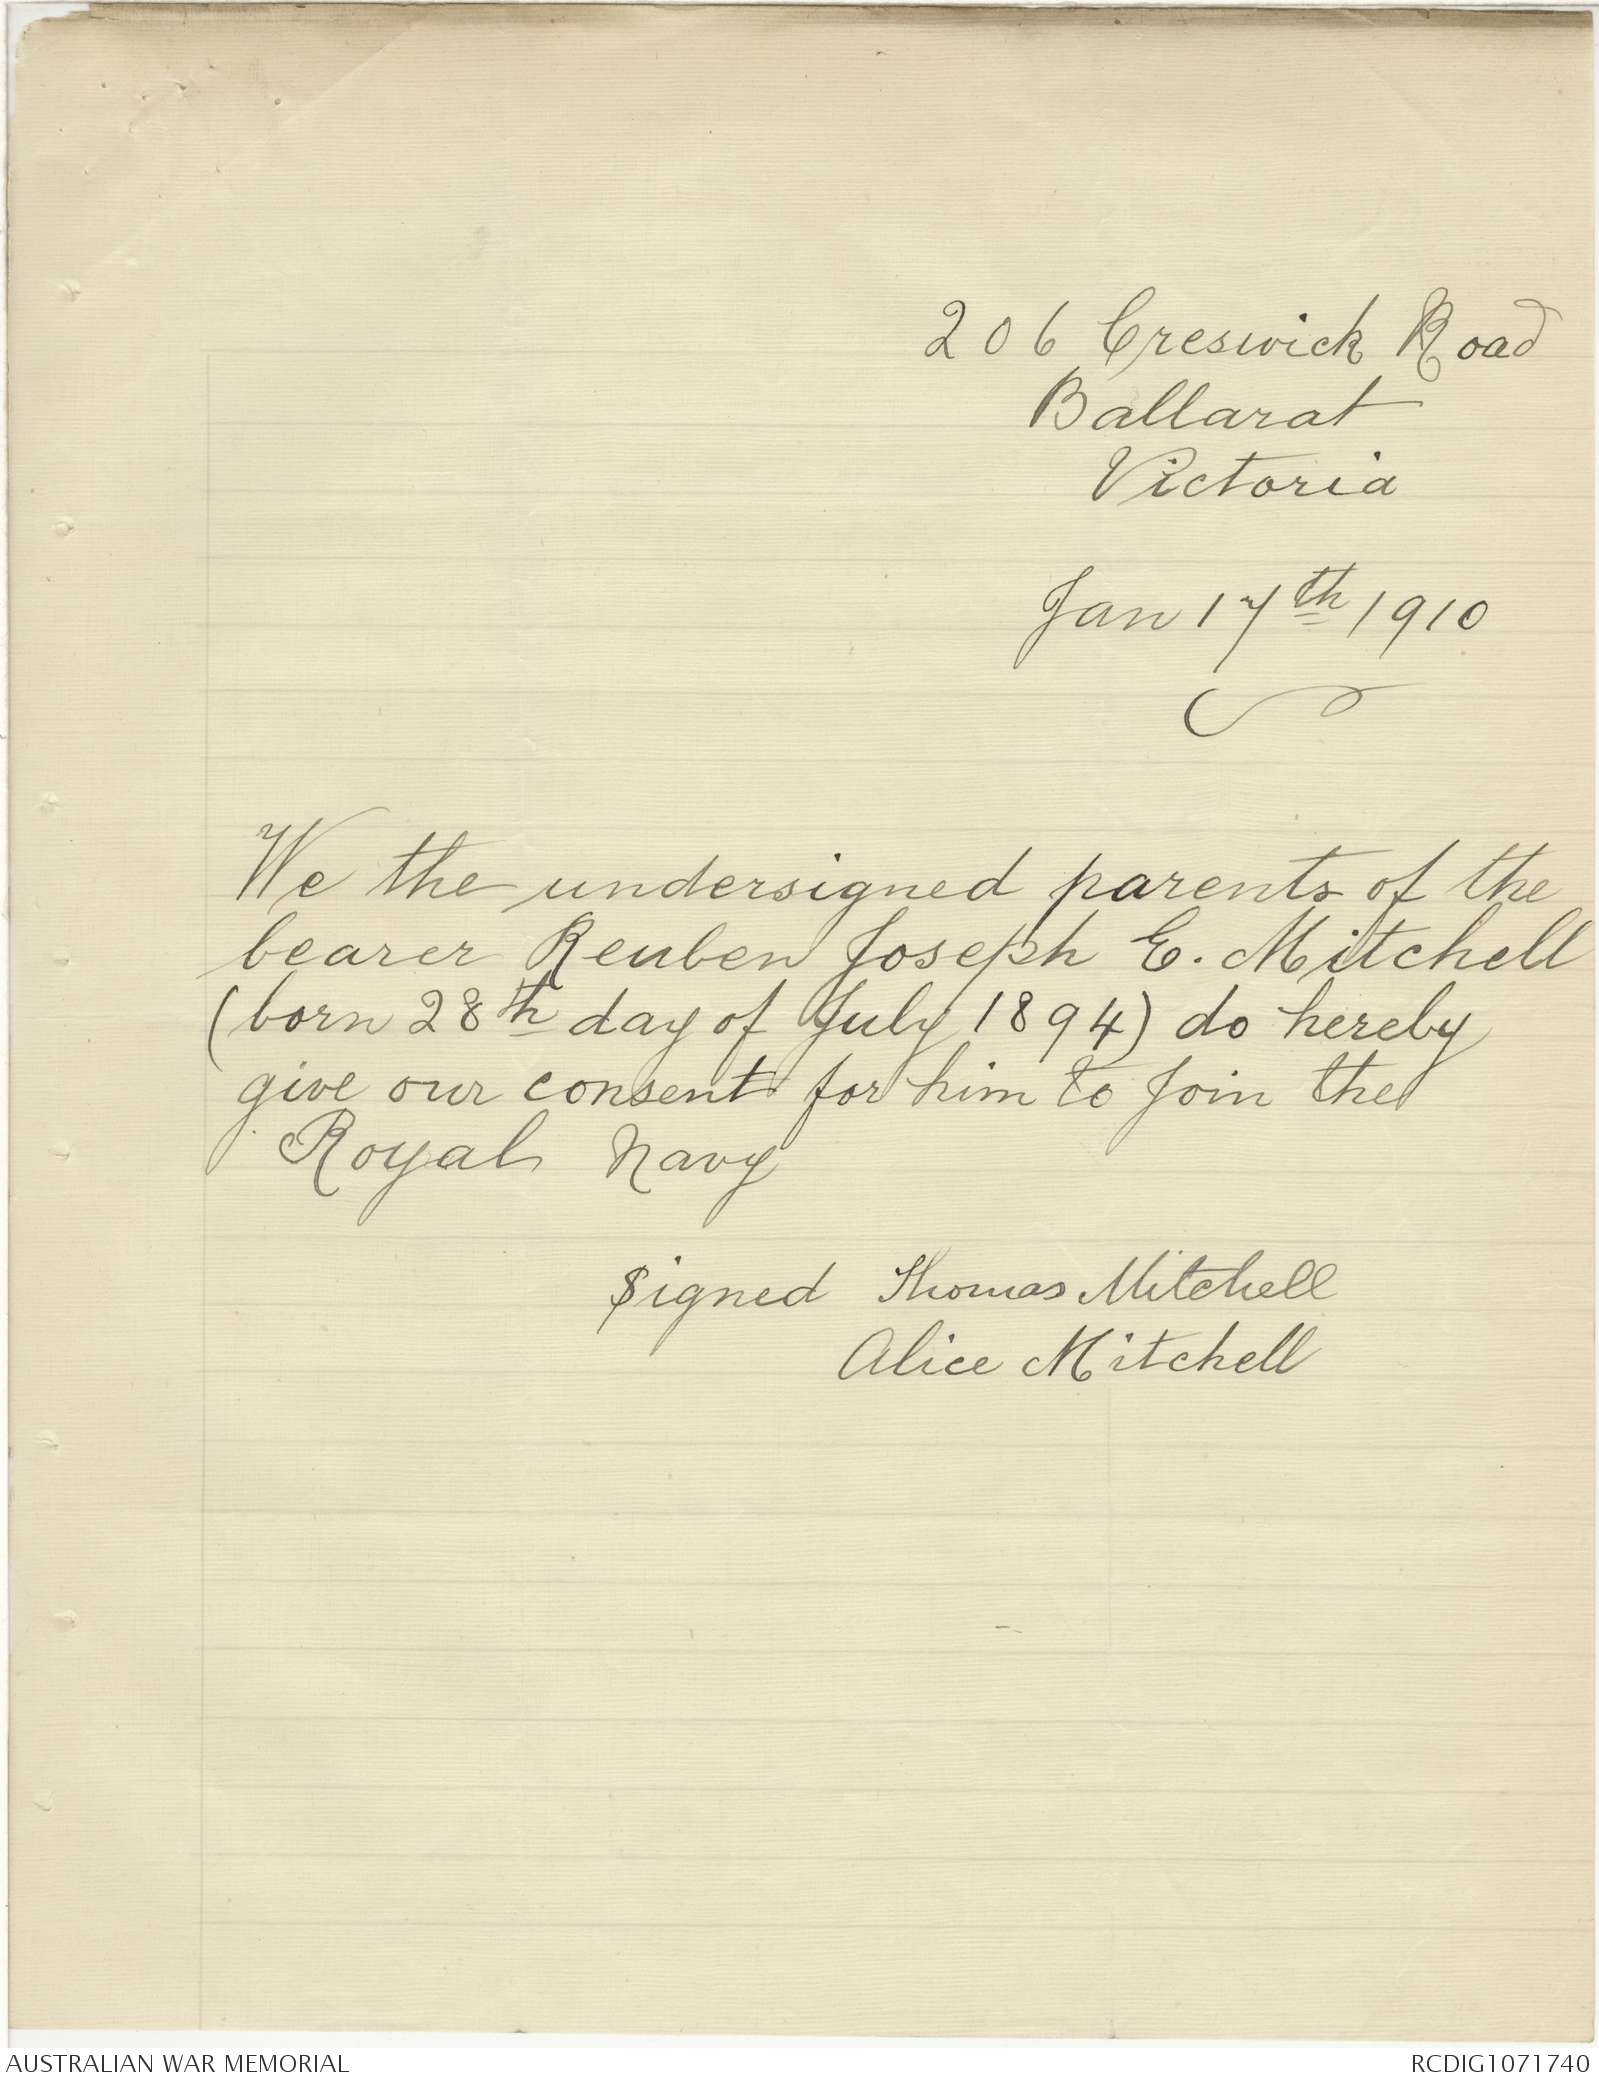 206 Creswick Road
Ballarat
Victoria
Jan 17th 1910
We the undersigned parents of the
bearer Reuben Joseph E. Mitchell
(born 28th day of July 1894) do hereby
give our consent for him to Join the
Royal Navy
Signed Thomas Mitchell
Alice Mitchell
AUSTRALIAN WAR MEMORIAL
RCDIG1071740